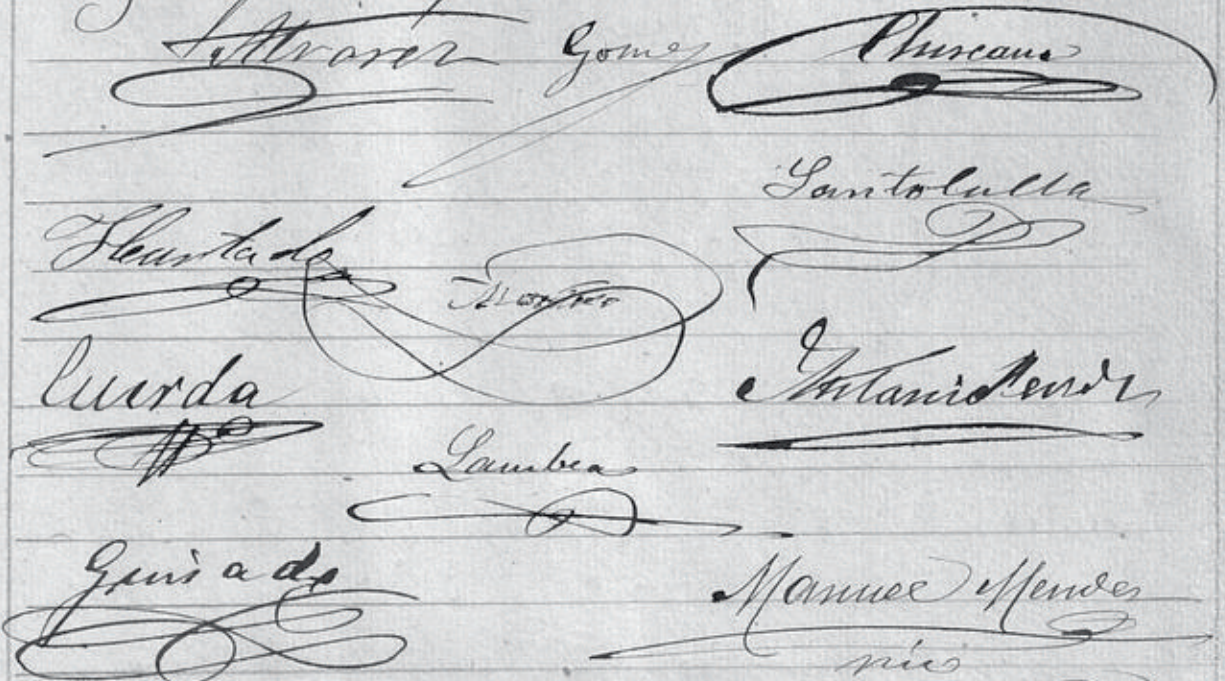 Alvarez Gomez Chiscano
Santolalla
Hurtado
Cuerda Antonio
Lambea
Guisado
Manuel Mendes